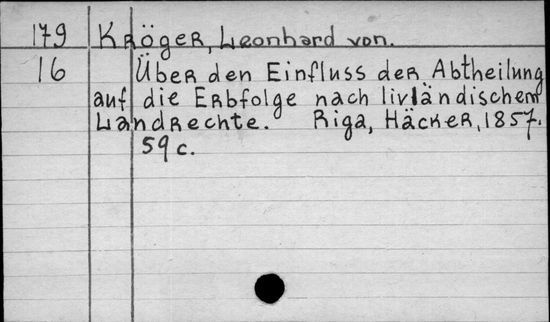 179 Kröger, Leonhard von.
16 Über den Einfluss der Abtheilung
auf die Erbfolge nach livländischem
Landrechte. Riga, Häcker, 1857.
59 c.